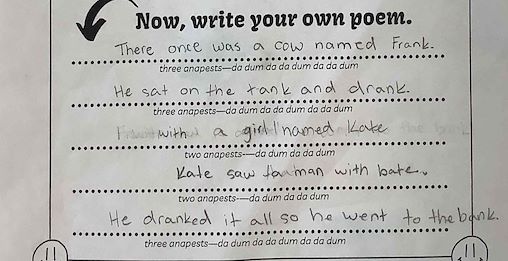 Now, write your own poem.
There once was a cow named Frank.
three anapests—da dum da da dum da da dum
He sat on the tank and drank.
three anapests—da dum da da dum da da dum
with a girl named Kate
two anapests—da dum da da dum
Kate saw man with bate.
two anapests—da dum da da dum
He dranked it all so he went to the bank.
three anapests—da dum da da dum da da dum
11 11